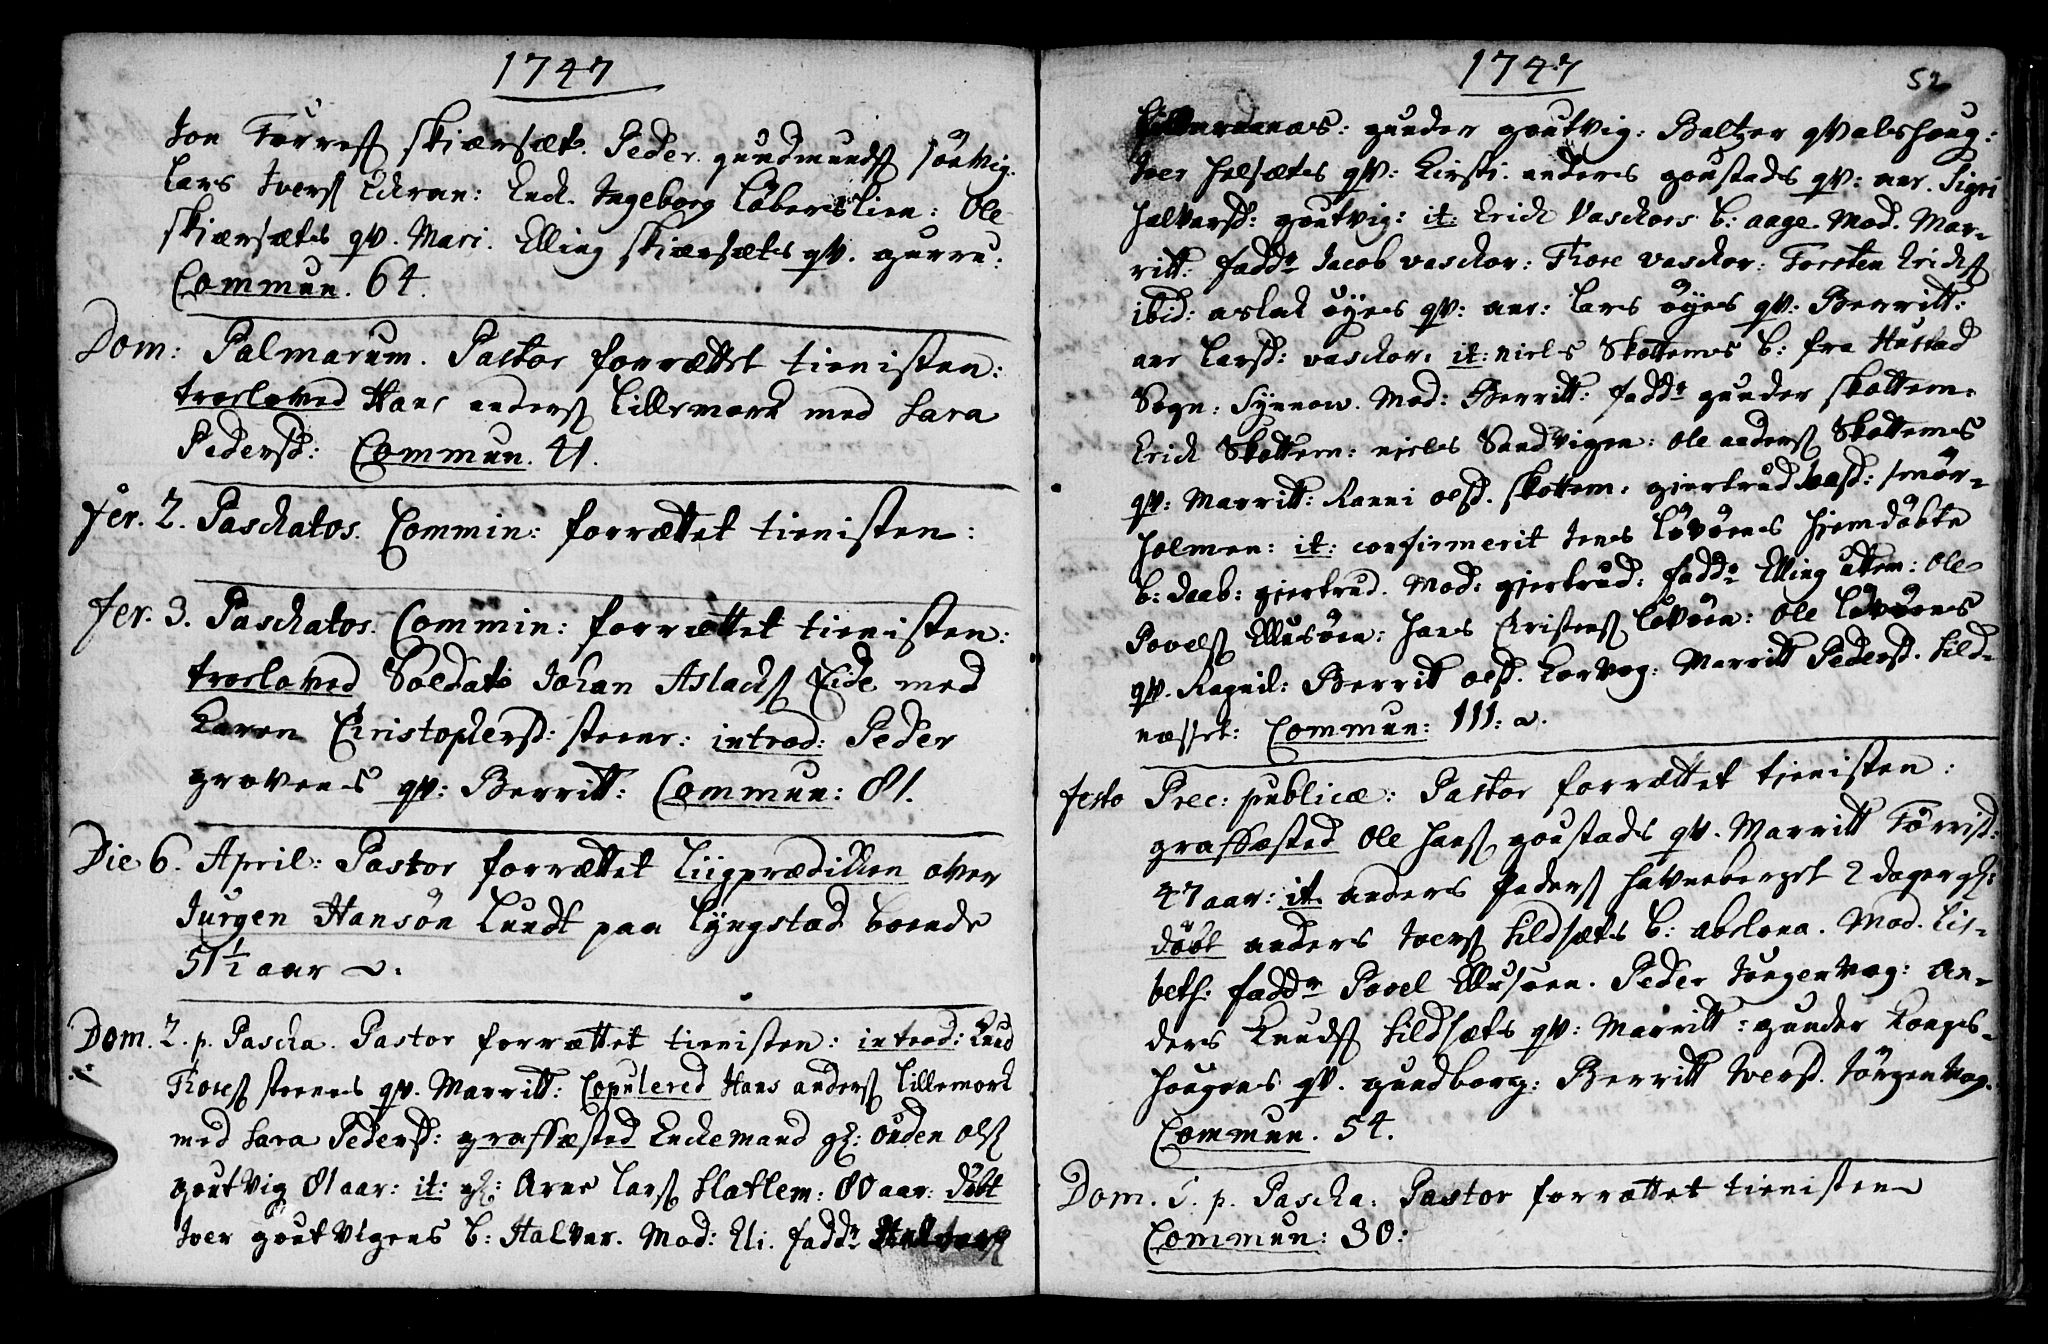 1747
Jon Torres skiærsæt. Peder gundmunds sörvig.
Lars Ivers Eckran: Enck. Ingeborg Löberslien: Ole
skiærsæts qv. Mari. Elling skiærsæts qv. gurru:
Commun. 64.
Dom: Palmarum. Pastor forrættet tienisten:
troeloved Hans anders Lillemork med Sara
Pedersd: Commun. 41.
fer. 2. Paschatos. Commin: forrættet tienisten:
fer. 3. Paschatos. Commin: forrættet tienisten:
troeloved Soldat Johan Aslachs Eide med
Karen Christophersd: steene: introd: Peder
grovens qv: Berritt: Commun: 81.
Die 6. April: Pastor forrættet Liigprædicken over
Jurgen Hansön Lundt paa Lyngstad boende
51 1/2 aar
Dom. 2. p. Pascha. Pastor forrættet tienisten: introd: Knud
Thores steenes qv. Marritt: Copulered Hans anders Lillemork
med Sara Pedersd: graffæsted Enckemand gl: ouden ols
goutvig 81 aar: it: gl: Arne Lars slatlem: 80 aar: döbt
Iver goutvigens b: Halvar. Mod: Eli. fadd:
1747
52
gunder goutvig: Baltzer qvalshoug:
Iver helsæts qv: Kirsti. anders goustads qv: ane. Sigri
halvarsd: goutvig: it: Erich Vaschors b: aage. Mod. Mar-
ritt: fadd: Jacob vaschor: Thore vaschor: Torsten Erichs
ibid: aslak öyes qv: ane: Lars öyes qv: Berritt:
ane Larsd: vaschor: it: niels Skottems b: fra Hustad
Sogn: Synnow. Mod: Berritt: fadd: gunder skottem:
Erich Skottem: niels Sandvigen: ole anders Skottems
qv: Marritt: Ranni olsd. skottem: giertrud smör-
holmen: it: confirmerit Jens Lövöens hiemdöbte
b: daab: giertrud. Mod: giertrud: fadd: Elling uttem: ole
Povels Ellusöen: hans Christens Lövöen: ole Lövöens
qv. Ragnil: Berrit olsd. korvog: Marritt Pedersd. sild-
næsset: Commun: 111:
festo Prec: publicæ: Pastor forrættet tienisten:
graffæsted ole hans goustads qv. Marritt Törrisd:
47 aar: it. anders Peders havneberget 2 dager gl:
döbt anders Ivers sildsæts b: abelona. Mod. Lis-
beth: fadd: Povel Ellusöen. Peder Jörgenvog: An-
ders Knuds sildsæts qv: Marritt: gunder kongs-
hougens qv. gundborg: Berritt Iversd. Jörgenvog.
Commun. 54.
Dom. 3. p. Pascha: Pastor forrættet tienisten
Commun: 30: